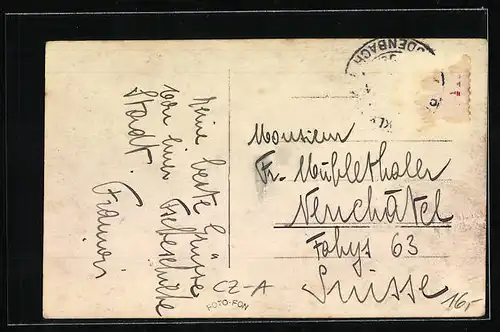 Meine beste Grüsse
von einer
Stadt.
ODENBACH
Monsieur
Fr. Mühlethaler
Neuchâtel
Fahys 63
Suisse
CZ-A
FOTO-FON
16,-